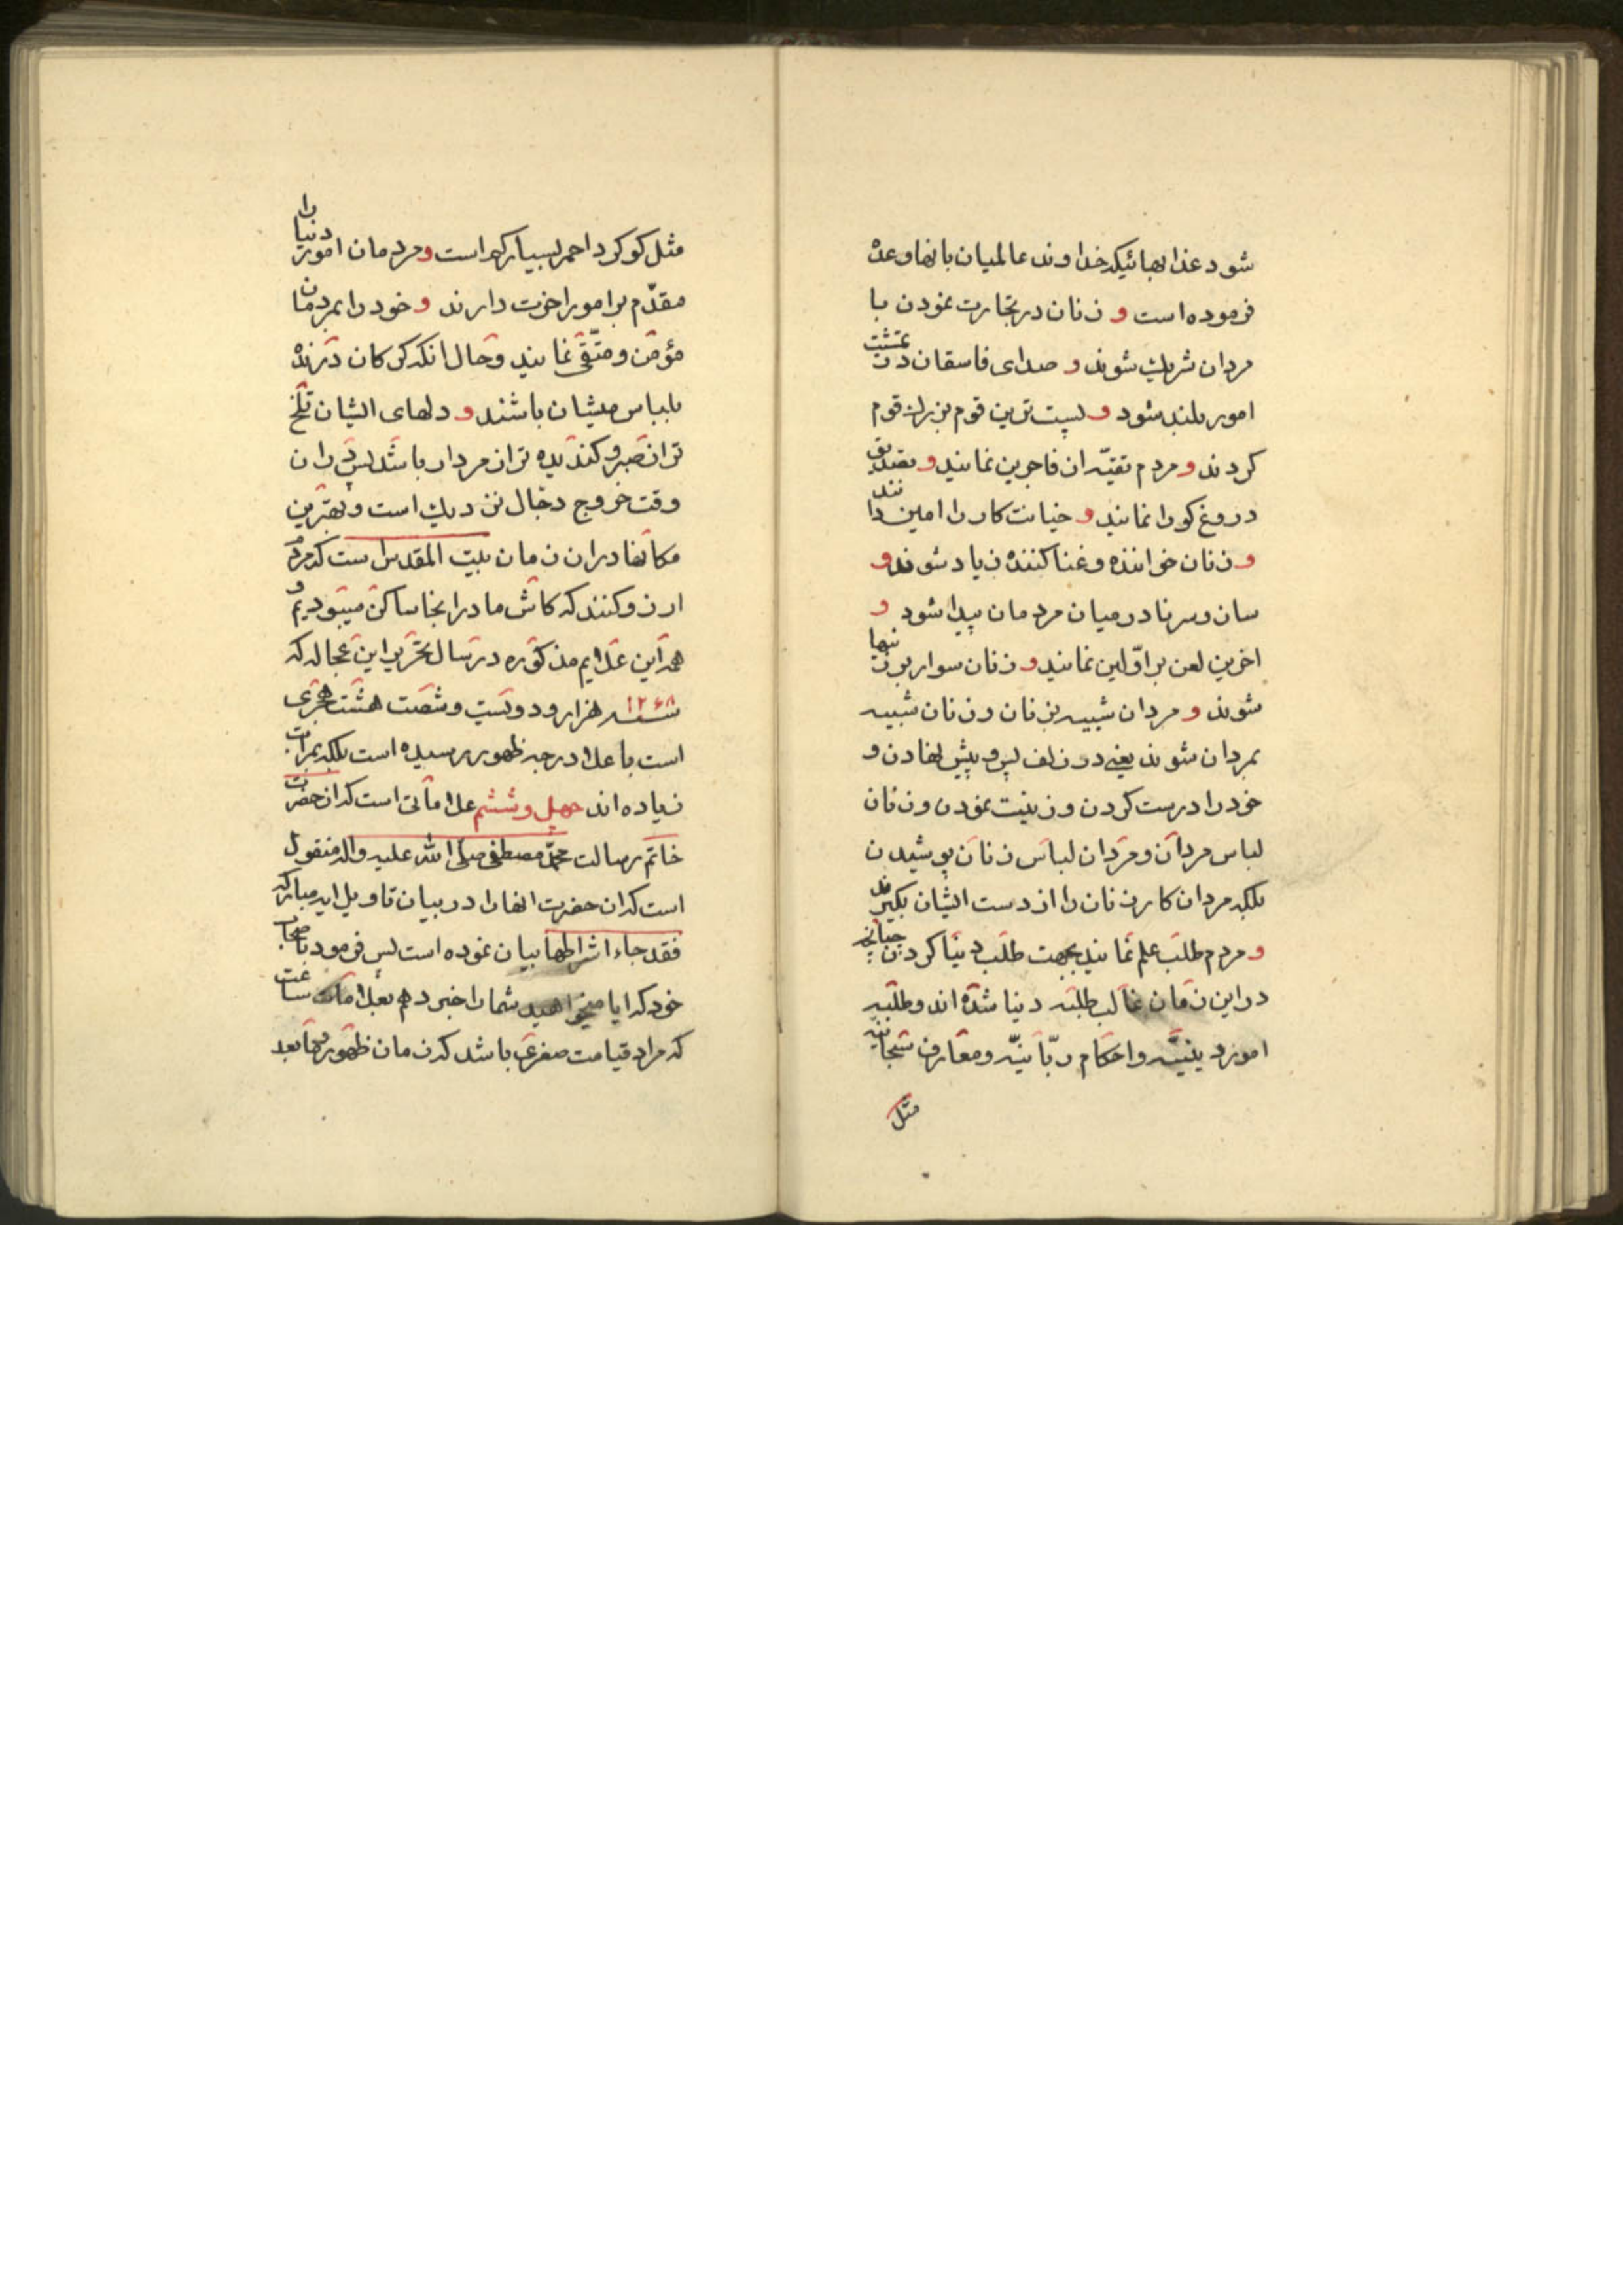 شود عذابهائیکه خداوند عالمیان بانها وعده
فرموده است و زنان در تجارت نمودن با
مردان شریک شوند و صدای فاسقان در تمشیت
امور بلند شود و پست ترین قوم بزرک قوم
کردند و مردم تقیّه از فاجرین نمایند و تصدیق
دروغ کو را نمایند و خیانت کار را امین دانند
و زنان خواننده و غنا کننده زیاد شوند و
ساز و سرنا در میان مردمان پیدا شود و
اخرین لعن بر اوّلین نمایند و زنان سوار بر زینها
شوند و مردان شبیه بزنان و زنان شبیه
بمردان شوند یعنی در زلف پس و پیش نهادن و
خود را درست کردن و زینت نمودن و زنان
لباس مردان و مردان لباس زنان پوشیدن
بلکه مردان کار زنان را از دست ایشان بکیرند
و مردم طلب علم نمایند بجهت طلب دنیا کردن چنانچه
در این زمان غالب طلبه دنیا شده اند و طلبه
امور دینیّه و احکام ربّانیّه و معارف سبحانیّه
مثل
مثل کوکرد احمر بسیار کم است و مردمان امور دنیا را
مقدّم بر امور اخرت دارند و خود را بمردمان
مؤمن و متّقی نمایند و حال انکه کرکان درنده
بلباس میشان باشند و دلهای ایشان تلخ
تر از صبر و کندیده تر از مردار باشد پس در ان
وقت خروج دجال نزدیک است و بهترین
مکانها در ان زمان بیت المقدس است که مردم
ارزو کنند که کاش ما در انجا ساکن میبودیم و
همه این علایم مذکوره در سال تحریر این عجاله که
سنه ۱۲۶۸ هزار و دویست و شصت هشت هجری
است با علا درجه ظهور رسیده است بلکه بمراتب
زیاده اند چهل و ششم علاماتی است که از حضرت
خاتم رسالت محمّد مصطفی صلّی الله علیه واله منقول
است که ان حضرت انها را در بیان تاویل ایه مبارکه
فقد جاء اشراطها بیان نموده است پس فرمود باصحاب
خود که ایا میخواهید شما را خبر دهم بعلامات ساعت
که مراد قیامت صغری باشد که زمان ظهور بعد